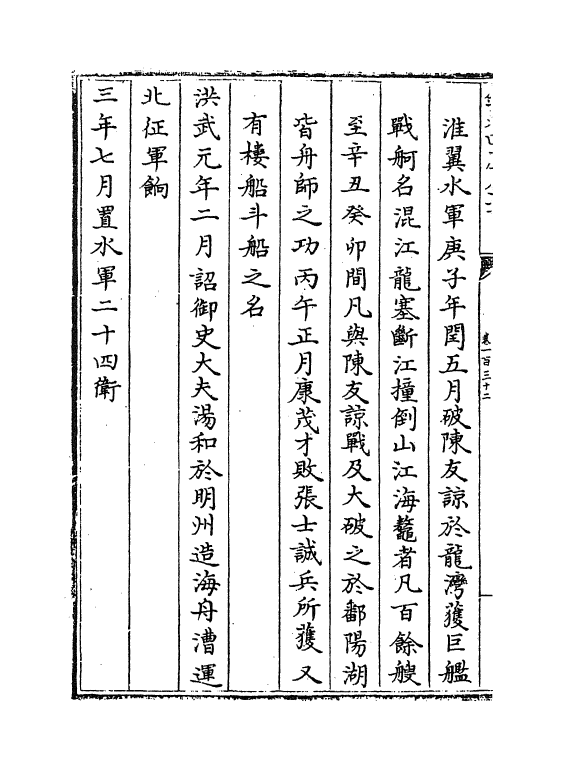 淮翼水軍庚子年閏五月破陳友諒於龍灣獲巨艦
戰舸名混江龍塞斷江撞倒山江海鼇者凡百餘艘
至辛丑癸卯間凡與陳友諒戰及大破之於鄱陽湖
皆舟師之功丙午正月康茂才敗張士誠兵所獲又
有樓船斗船之名
洪武元年二月詔御史大夫湯和於明州造海舟漕運
北征軍餉
三年七月置水軍二十四衛
卷一百三十二